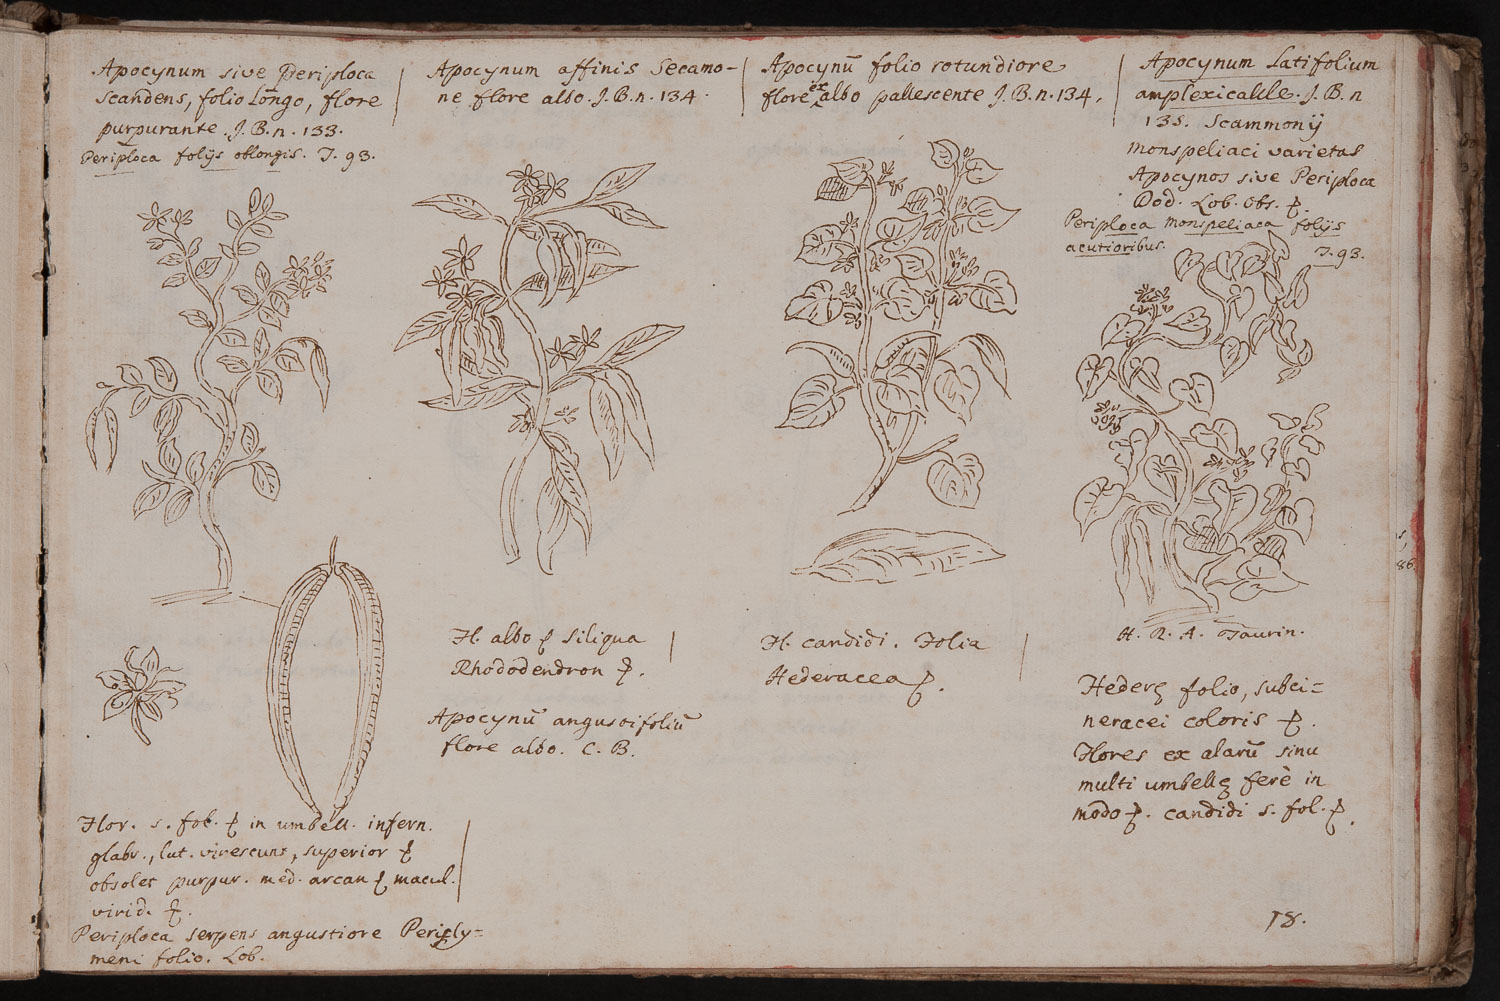 Apocynum sive Periploca
scandens, folio Longo, flore
purpurante. J. B. n. 133.
Periploca folijs oblongis. T. 93.
Apocynum affinis Secamo-
ne flore albo. J. B. n. 134.
Apocynū folio rotundiore
flore ex albo pallescente J. B. n. 134.
Apocynum Latifolium
amplexicaule. J. B. n
135. Scammonij
monspeliaci varietas
Apocynos sive Periploca
Dod. Lob. obs.
Periploca monspeliaca folijs
acutioribus. T. 93.
Flor. s. fol. in umbell. infern.
glabr., lut. virescunt, superior
obsolet purpur. med. arcan macul.
virid.
Periploca serpens angustiore Pericly=
meni folio. Lob.
Fl. albo siliqua
Rhododendron
Apocynū angustifoliū
flore albo. C. B.
Fl. candidi. Folia
Hederacea
H. R. A. Taurin.
Hederę folio, subci=
neracei coloris
Flores ex alarū sinu
multi umbellę ferè in
modo candidi s. fol.
86
18.